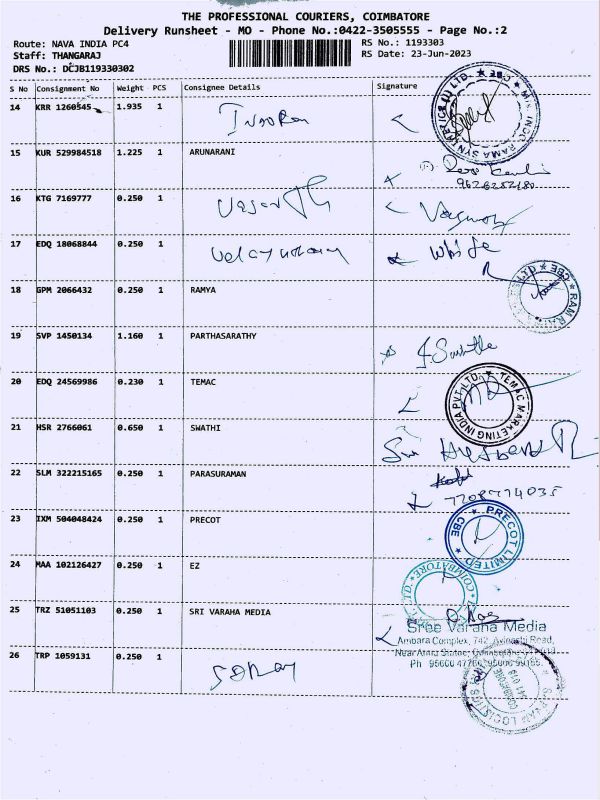 THE PROFESSIONAL COURIERS, COIMBATORE
Delivery Runsheet - MO - Phone No.:0422-3505555 - Page No.:2
Route: NAVA INDIA PC4 RS No.: 1193303
Staff: THANGARAJ RS Date: 23-Jun-2023
DRS No.: DCJB119330302
S No Consignment No Weight PCS Consignee Details Signature
14 KRR 1260545 1.935 1
15 KUR 529984518 1.225 1 ARUNARANI
9626252180
16 KTG 7169777 0.250 1
17 EDQ 18068844 0.250 1 White
18 GPM 2066432 0.250 1 RAMYA
19 SVP 1450134 1.160 1 PARTHASARATHY
20 EDQ 24569986 0.230 1 TEMAC
TEMAC MARKETING INDIA PVT LTD.
21 HSR 2766061 0.650 1 SWATHI
22 SLM 322215165 0.250 1 PARASURAMAN
7708774035
23 IXM 504048424 0.250 1 PRECOT
PRECOT LIMITED CBE
24 MAA 102126427 0.250 1 EZ
COIMBATORE
25 TRZ 51051103 0.250 1 SRI VARAHA MEDIA
Sree Varaha Media
Ambara Complex, 742, Avinashi Road,
26 TRP 1059131 0.250 1